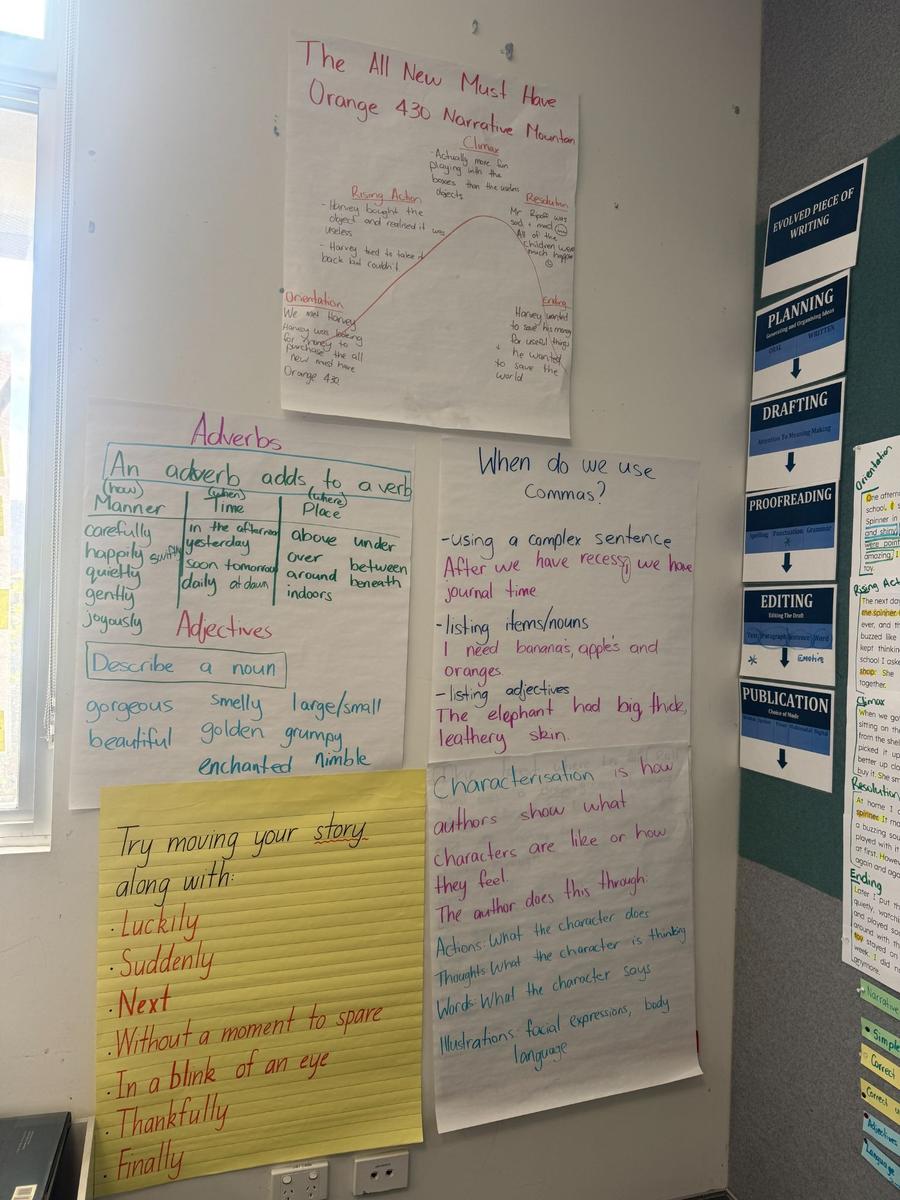 The All New Must Have
Orange 430 Narrative Mountain
Climax
- Actually more fun
playing with the
boxes than the useless
objects
Rising Action
- Harvey bought the
object and realised it was
useless
- Harvey tried to take it
back but couldn't
Resolution
Mr Ripoff was
sad + mad
All of the
children were
much happier
Orientation
We met Harvey
Harvey was looking
for money to
purchase the all
new must have
Orange 430
Ending
Harvey wanted
to save his money
for useful things
+ he wanted
to save the
world
Adverbs
An adverb adds to a verb
(how) (when) (where)
Manner Time Place
carefully
happily swiftly
quietly
gently
joyously
in the afternoon
yesterday
soon tomorrow
daily at dawn
above under
over between
around beneath
indoors
Adjectives
Describe a noun
gorgeous smelly large/small
beautiful golden grumpy
enchanted nimble
When do we use
commas?
-using a complex sentence
After we have recess, we have
journal time
-listing items/nouns
I need banana's, apple's and
oranges.
-listing adjectives
The elephant had big, thick,
leathery skin.
Try moving your story
along with:
· Luckily
· Suddenly
· Next
· Without a moment to spare
· In a blink of an eye
· Thankfully
· Finally
Characterisation is how
authors show what
characters are like or how
they feel.
The author does this through:
Actions: What the character does
Thoughts: What the character is thinking
Words: What the character says
Illustrations: facial expressions, body
language
EVOLVED PIECE OF
WRITING
PLANNING
Generating and Organising Ideas
ORAL WRITTEN
DRAFTING
Attention To Meaning Making
PROOFREADING
Spelling Punctuation Grammar
EDITING
Editing The Draft
Text Paragraph Sentence Word
* Emotive
PUBLICATION
Choice of Mode
Orientation
One aftern
school, I s
Spinner in
and shiny
were point
amazing. I
toy.
Rising Act
The next day
the spinner
ever, and th
buzzed like
kept thinking
school I aske
shop. She
together.
Climax
When we got
sitting on the
from the shel
picked it up
better up clo
buy it. She sm
Resolution
At home I
spinner. It ma
a buzzing sou
played with it
at first. Howe
again and aga
Ending
Later I put th
quietly, watchi
and played so
around with th
toy stayed on
week. I did n
anymore.
Narrative
Simple
Correct
Correct u
Adjectives
Language